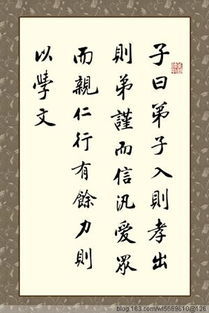 子曰弟子入則孝出
則弟謹而信汎愛眾
而親仁行有餘力則
以學文
blog.163.com/wl5559610@126